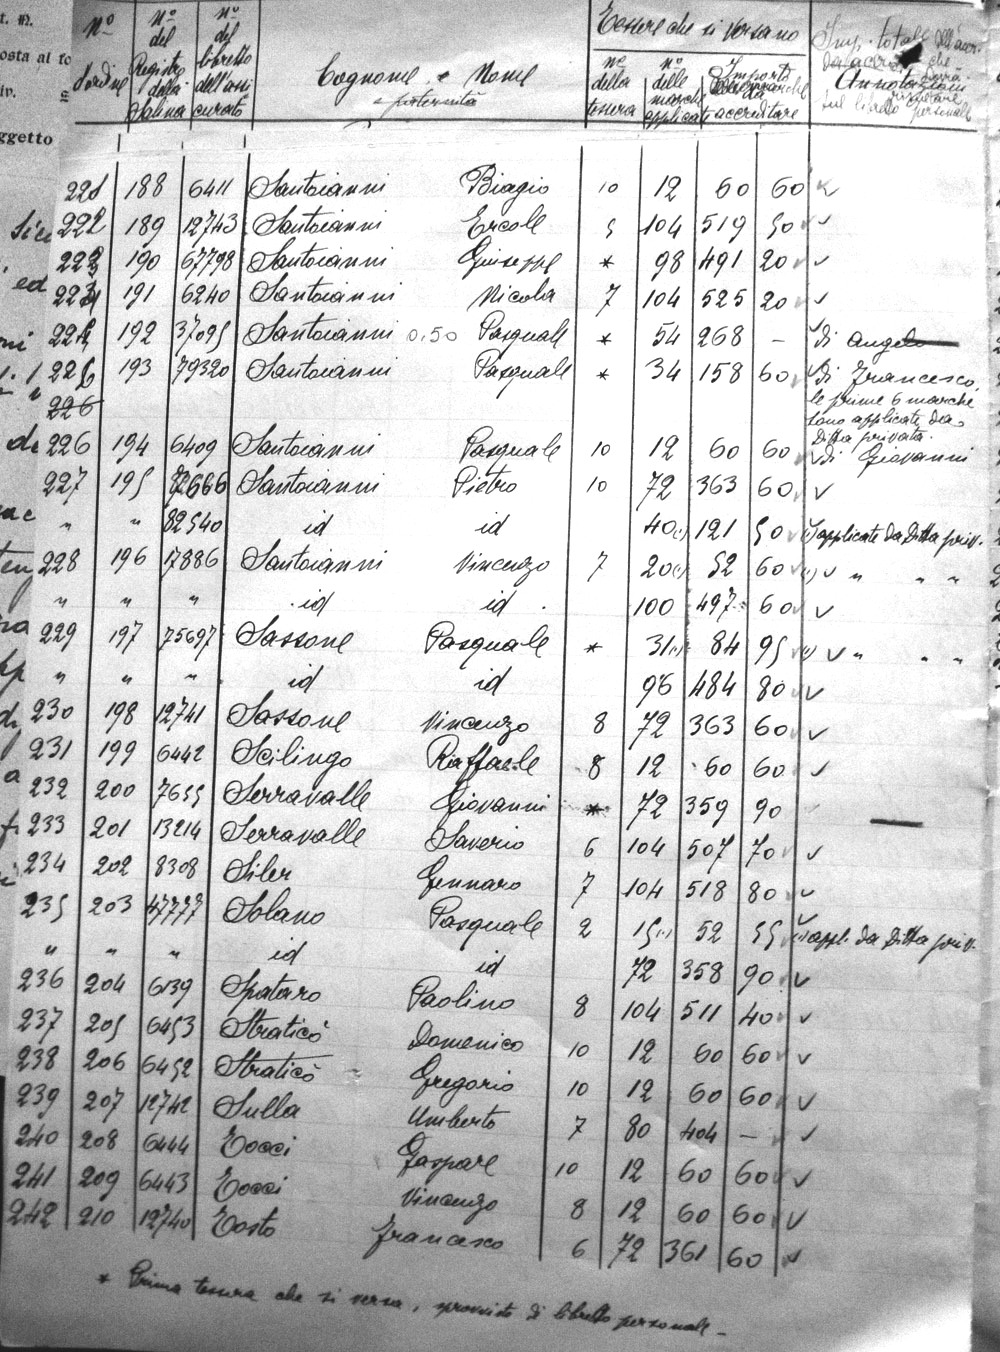 Nº d'ordine | Nº del Registro della Salma | Nº del libretto dell'assicurato | Cognome e Nome e paternità | Tessere che si versano | Annotazioni
nº della tessera | nº delle marche applicate | Importo marche da accreditare
221 188 6411 Santoianni Biagio 10 12 60 60
222 189 12743 Santoianni Ercole 5 104 519 50
223 190 67798 Santoianni Giuseppe * 98 491 20
224 191 6240 Santoianni Nicola 7 104 525 20
192 37095 Santoianni 0,50 Pasquale * 54 268 – di Angelo
193 79320 Santoianni Pasquale * 34 158 60 di Francesco,
226 le prime 6 marche
sono applicate da
Ditta privata.
226 194 6409 Santoianni Pasquale 10 12 60 60 di Giovanni
227 195 72666 Santoianni Pietro 10 72 363 60
" " 82540 id id 40(1) 121 50 (1) applicate da Ditta priv.
228 196 17886 Santoianni Vincenzo 7 20(1) 52 60 (1) " " "
" " " id id 100 497 60
229 197 75697 Sassone Pasquale * 31(1) 84 95 (1) " " "
" " " id id 96 484 80
230 198 12741 Sassone Vincenzo 8 72 363 60
231 199 6442 Scilingo Raffaele 8 12 60 60
232 200 7655 Serravalle Giovanni * 72 359 90
233 201 13214 Serravalle Saverio 6 104 507 70
234 202 8308 Siler Gennaro 7 104 518 80
235 203 47777 Solano Pasquale 2 15(1) 52 55 (1) appl. da Ditta priv.
" " " id id 72 358 90
236 204 6139 Spataro Paolino 8 104 511 40
237 205 6453 Straticò Domenico 10 12 60 60
238 206 6452 Straticò Gregorio 10 12 60 60
239 207 12742 Sulla Umberto 7 80 404 –
240 208 6444 Tocci Gaspare 10 12 60 60
241 209 6443 Tocci Vincenzo 8 12 60 60
242 210 12740 Tosto Francesco 6 72 361 60
* Prima tessera che si versa, sprovvisto di libretto personale.